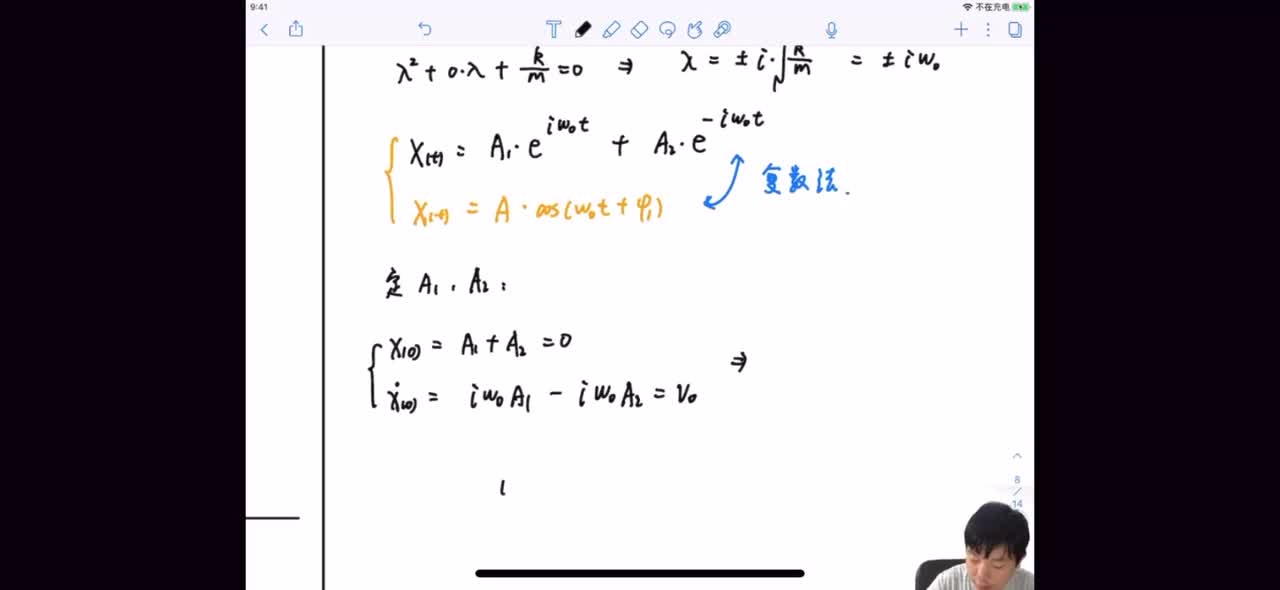 9:41
不在充电
λ² + 0·λ + k/m = 0 ⇒ λ = ± i·√(k/m) = ± iω₀
X(t) = A₁·e^{iω₀t} + A₂·e^{-iω₀t}
复数法.
X(t) = A·cos(ω₀t + φ₁)
定 A₁, A₂:
X(0) = A₁ + A₂ = 0
⇒
ẋ(0) = iω₀A₁ - iω₀A₂ = V₀
8
/
14